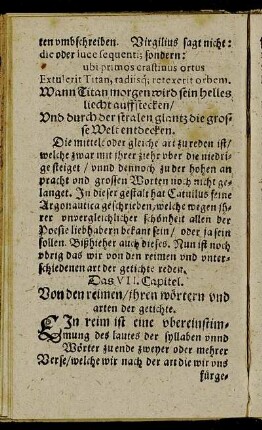 ten vmbschreiben. Virgilius sagt nicht:
die oder luce sequenti; sondern:
ubi primos crastinus ortus
Extulerit Titan, radiisq; retexerit orbem.
Wann Titan morgen wird sein helles
liecht auffstecken/
Vnd durch der stralen glantz die gros-
se Welt entdecken.
Die mittele oder gleiche art zue reden ist/
welche zwar mit jhrer ziehr vber die niedri-
ge steiget / vnnd dennoch zu der hohen an
pracht vnd grossen Worten noch nicht ge-
langet. In dieser gestalt hat Catullus seine
Argonautica geschrieben/ welche wegen jh-
rer vnvergleichlicher schönheit allen der
Poesie liebhabern bekant sein / oder ja sein
sollen. Bißhieher auch dieses. Nun ist noch
vbrig das wir von den reimen vnd vnter-
schiedenen art der getichte reden.
Das VII. Capitel.
Von den reimen / jhren wörtern vnd
arten der getichte.
EIn reim ist eine vbereinstim-
mung des lautes der syllaben vnnd
Wörter zue ende zweyer oder mehrer
Verse/ welche wir nach der art die wir vns
fürge-